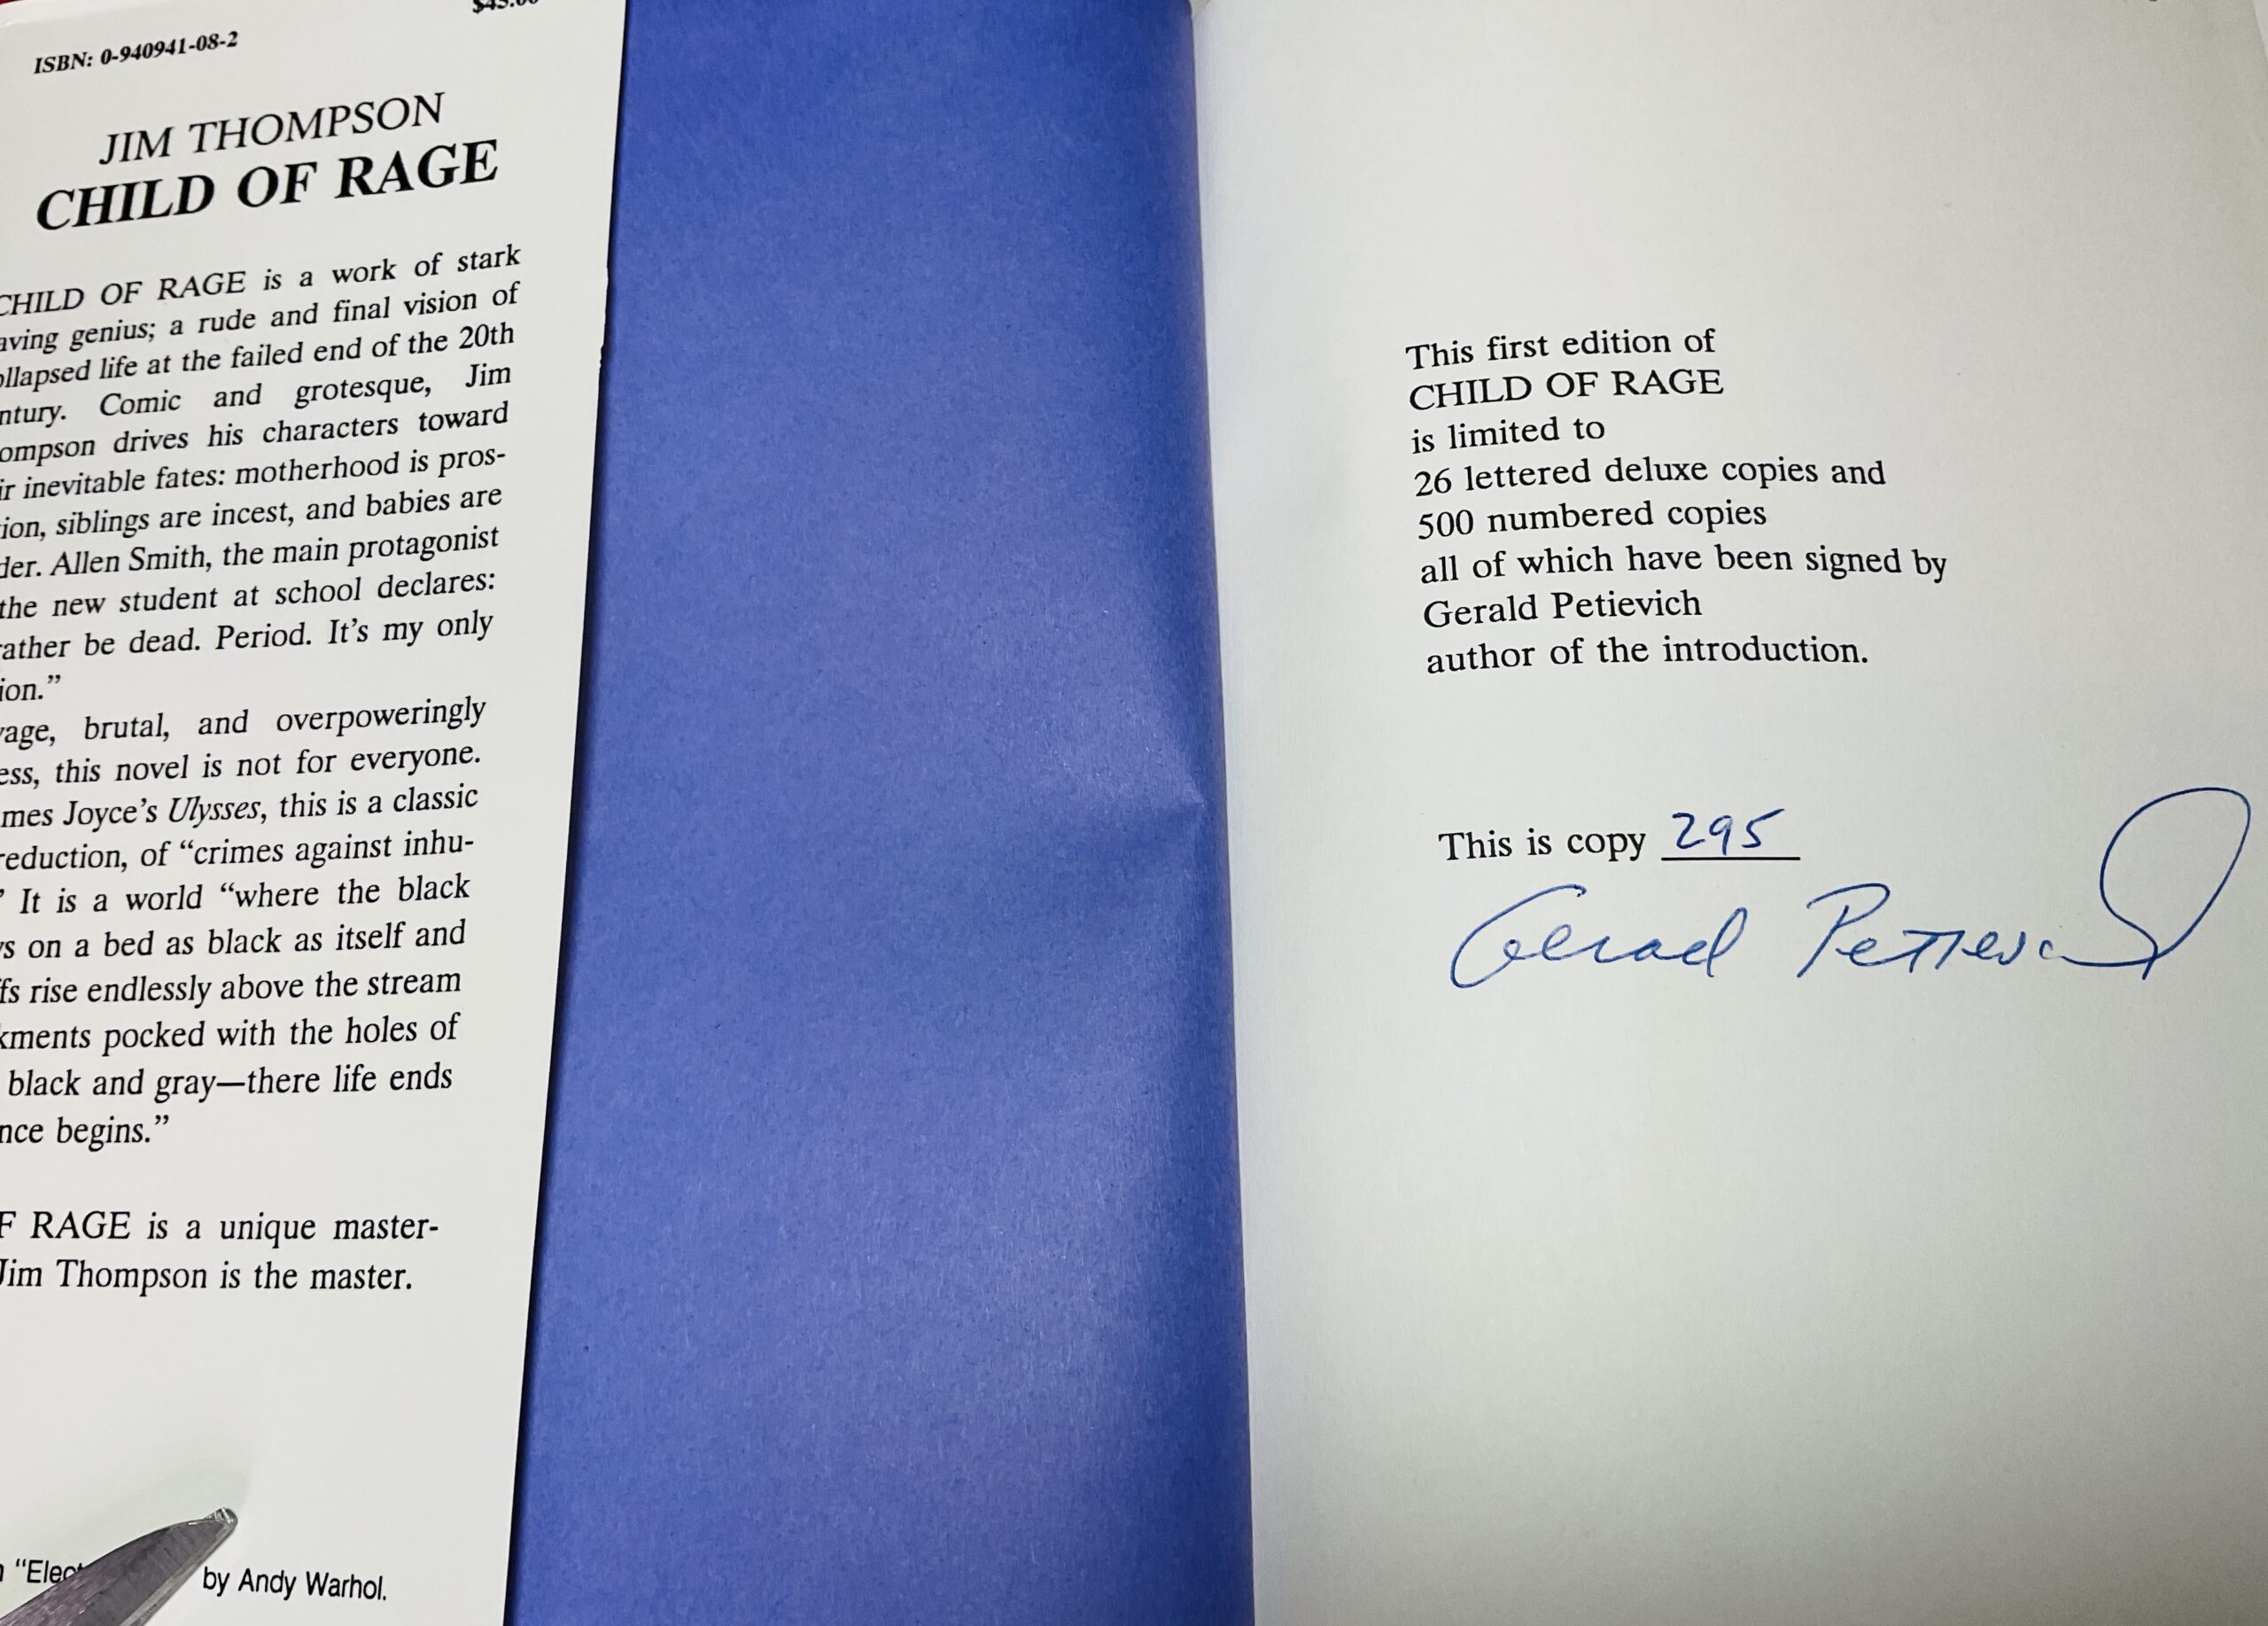 ISBN: 0-940941-08-2
JIM THOMPSON
CHILD OF RAGE
CHILD OF RAGE is a work of stark
genius; a rude and final vision of
life at the failed end of the 20th
Comic and grotesque, Jim
drives his characters toward
inevitable fates: motherhood is pros-
siblings are incest, and babies are
Allen Smith, the main protagonist
the new student at school declares:
rather be dead. Period. It's my only
brutal, and overpoweringly
this novel is not for everyone.
Joyce's Ulysses, this is a classic
of "crimes against inhu-
It is a world "where the black
on a bed as black as itself and
rise endlessly above the stream
pocked with the holes of
black and gray—there life ends
begins."
RAGE is a unique master-
Jim Thompson is the master.
by Andy Warhol.
This first edition of
CHILD OF RAGE
is limited to
26 lettered deluxe copies and
500 numbered copies
all of which have been signed by
Gerald Petievich
author of the introduction.
This is copy 295
Gerald Petievich